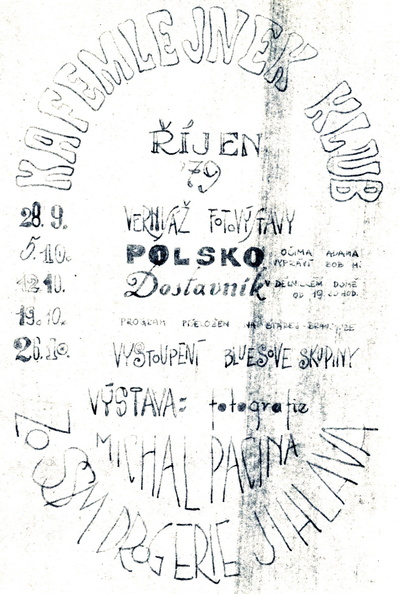 KAFEMLEJNEK KLUB
ŘÍJEN
'79
28. 9. VERNISÁŽ FOTOVÝSTAVY
5. 10. POLSKO OČIMA ADAMA
VYPRÁVÍ BOB H.
12. 10. Dostavník V DĚLNICKÉM DOMĚ
OD 19.00 HOD.
19. 10. PROGRAM PŘELOŽEN NA
26. 10. VYSTOUPENÍ BLUESOVÉ SKUPINY
VÝSTAVA: fotografie
MICHAL PACINA
ZO SSM DROGERIE JIHLAVA